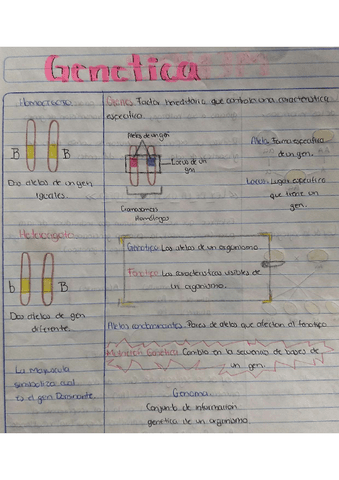 Genetica
Homocigoto
B B
Dos alelos de un gen
iguales.
Heterocigoto
b B
Dos alelos de gen
diferente.
La mayuscula
cual
es el gen Dominante.
Genes Factor hereditario que controla una caracteristica
especifica.
Alelos de un gen
Locus de un
gen
Cromosomas
Homólogos
Alelo: Forma especifica
de un gen.
Locus: Lugar especifico
que tiene un
gen.
Genotipo: Los alelos de un organismo
Fenotipo: Las caracteristicas visibles de
un organismo.
Alelos Pares de alelos que afectan el fenotipo
Mutacion Genetica: Cambio en la secuencia de bases de
un gen.
Genoma:
Conjunto de informacion
genetica de un organismo.